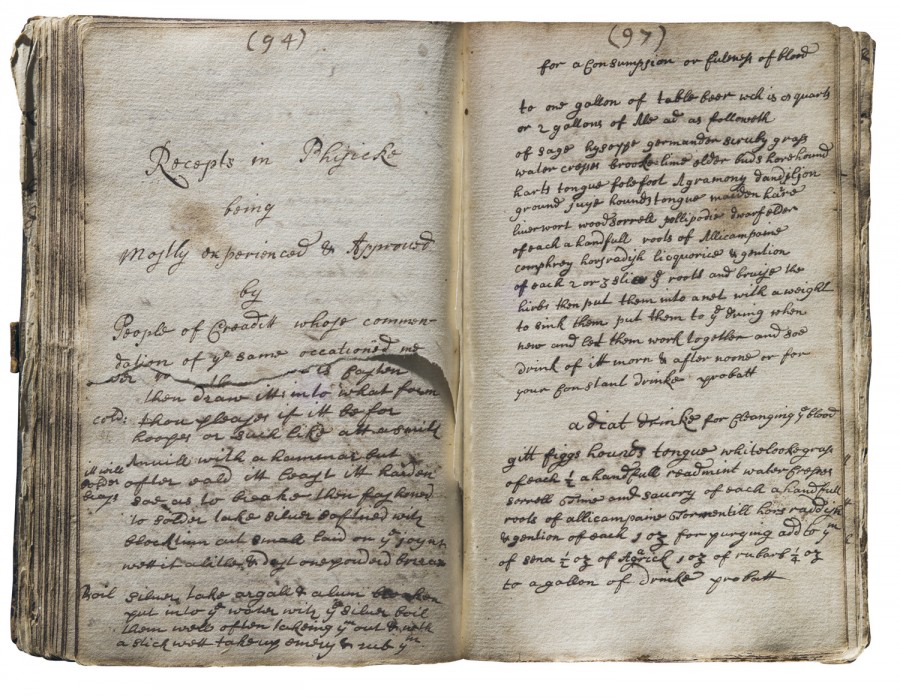 (94)
Recepts in Phisicke
being
Mostly experienced & Approved
by
People of Creaditt whose commen-
dation of yᵉ same occationed me
to fasten
then draw itt into what form
cold: thou pleases if itt be for
hoopes or such like att a small
Anvill with a hammar but
itt will ofter eald itt least itt harden
soe as to breake then fashoned
to solder take silver softned with
block tinn cut small laid on yᵉ joynt
wett itt a litle, & dust on powderd
Boil silver take argall & alum
put into yᵉ water with yᵉ silver boil
them well often takeing yᵐ out & with
a stick wett take up emery & rub yᵐ
(97)
for a Consumpsion or fulness of blood
to one gallon of table beer wch is 8 quarts
or 2 gallons of Ale ad as followeth
of sage hysoppe germander scruby grass
water creses brooke lime elder buds horehound
harts tongue folefoot Agramony dandelion
ground Juye hounds tongue maiden haire
liuerwort woodsorrell pollipodie dwarf elder
of each a handfull roots of Allicampane
comphrey horsradish licquorice & gention
of each 2 or 3 slices yᵉ roots and bruise the
hirbs then put them into a net with a weight
to sink them put them to yᵉ when
new and let them work together and soe
drink of itt morn & after noone or for
your Constant drinke probatt
a diat drinke for Cleanging yᵉ blood
gitt figgs hounds tongue
of each ½ a handfull readmint water Cresses
sorrell time and sauory of each a handfull
roots of allicampaine Tormentill hors raddish
& gention of each 1 oz for purging add to yᵐ
of sena ½ oz of Agrick 1 oz of rubarb ¼ oz
to a gallon of drinke probatt